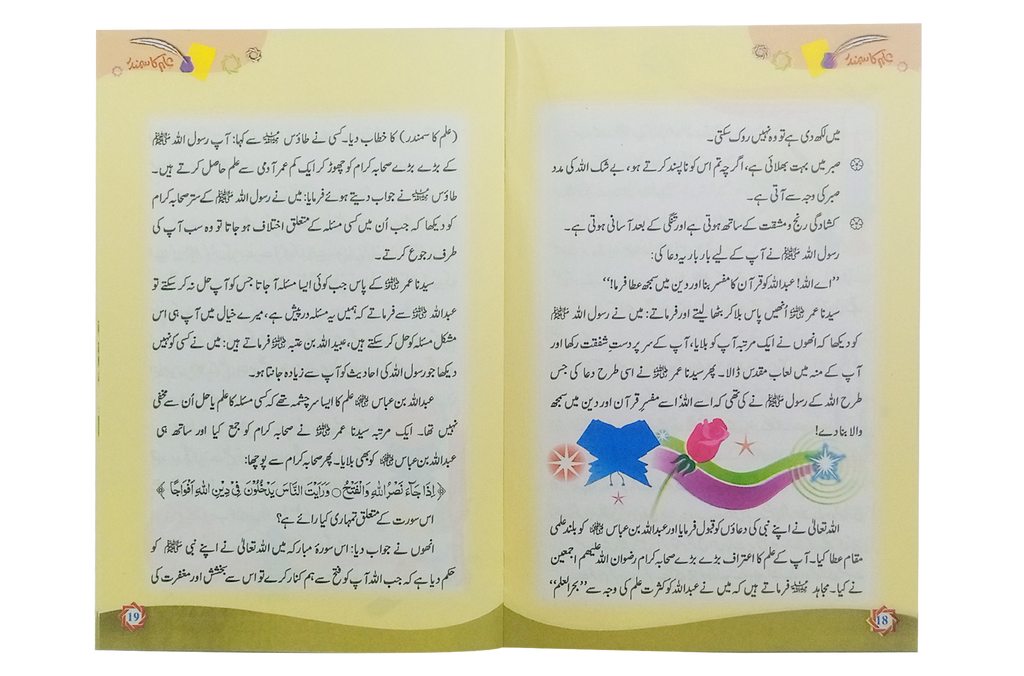 علم کا سمندر
میں لکھ دی ہے تو وہ نہیں روک سکتی۔
صبر میں بہت بھلائی ہے، اگرچہ تم اس کو ناپسند کرتے ہو، بے شک اللہ کی مدد
صبر کی وجہ سے آتی ہے۔
کشادگی رنج و مشقت کے ساتھ ہوتی ہے اور تنگی کے بعد آسانی ہوتی ہے۔
رسول اللہ ﷺ نے آپ کے لیے بار بار یہ دعا کی:
’’اے اللہ! عبداللہ کو قرآن کا مفسر بنا اور دین میں سمجھ عطا فرما!‘‘
سیدنا عمر رضی اللہ عنہ اُنھیں پاس بلا کر بٹھا لیتے اور فرماتے: میں نے رسول اللہ ﷺ
کو دیکھا کہ انھوں نے ایک مرتبہ آپ کو بلایا، آپ کے سر پر دستِ شفقت رکھا اور
آپ کے منہ میں لعاب مقدس ڈالا۔ پھر سیدنا عمر رضی اللہ عنہ نے اسی طرح دعا کی جس
طرح اللہ کے رسول ﷺ نے کی تھی کہ اے اللہ! اسے مفسرِ قرآن اور دین میں سمجھ
والا بنا دے!
اللہ تعالیٰ نے اپنے نبی کی دعاؤں کو قبول فرمایا اور عبداللہ بن عباس رضی اللہ عنہما کو بلند علمی
مقام عطا کیا۔ آپ کے علم کا اعتراف بڑے بڑے صحابہ کرام رضوان اللہ علیھم اجمعین
نے کیا۔ مجاہد رحمہ اللہ فرماتے ہیں کہ میں نے عبداللہ کو کثرت علم کی وجہ سے ’’بحر العلم‘‘
18
(علم کا سمندر) کا خطاب دیا۔ کسی نے طاؤس رحمہ اللہ سے کہا: آپ رسول اللہ ﷺ
کے بڑے بڑے صحابہ کرام کو چھوڑ کر ایک کم عمر آدمی سے علم حاصل کرتے ہیں۔
طاؤس رحمہ اللہ نے جواب دیتے ہوئے فرمایا: میں نے رسول اللہ ﷺ کے ستر صحابہ کرام
کو دیکھا کہ جب اُن میں کسی مسئلہ کے متعلق اختلاف ہو جاتا تو وہ سب آپ کی
طرف رجوع کرتے۔
سیدنا عمر رضی اللہ عنہ کے پاس جب کوئی ایسا مسئلہ آجاتا جس کو آپ حل نہ کر سکتے تو
عبداللہ رضی اللہ عنہ سے فرماتے کہ ہمیں یہ مسئلہ درپیش ہے، میرے خیال میں آپ ہی اس
مشکل مسئلہ کو حل کر سکتے ہیں، عبیداللہ بن عتبہ رضی اللہ عنہ فرماتے ہیں: میں نے کسی کو نہیں
دیکھا جو رسول اللہ کی احادیث کو آپ سے زیادہ جانتا ہو۔
عبداللہ بن عباس رضی اللہ عنہما علم کا ایسا سر چشمہ تھے کہ کسی مسئلہ کا علم یا حل اُن سے مخفی
نہیں تھا۔ ایک مرتبہ سیدنا عمر رضی اللہ عنہ نے صحابہ کرام کو جمع کیا اور ساتھ ہی
عبداللہ بن عباس رضی اللہ عنہما کو بھی بلایا۔ پھر صحابہ کرام سے پوچھا:
﴿اِذَا جَآءَ نَصْرُ اللّٰهِ وَالْفَتْحُ ○ وَرَاَيْتَ النَّاسَ يَدْخُلُوْنَ فِيْ دِيْنِ اللّٰهِ اَفْوَاجًا﴾
اس سورت کے متعلق تمہاری کیا رائے ہے؟
انھوں نے جواب دیا: اس سورۂ مبارکہ میں اللہ تعالیٰ نے اپنے نبی ﷺ کو
حکم دیا ہے کہ جب اللہ آپ کو فتح سے ہم کنار کرے تو اس سے بخشش اور مغفرت کی
19